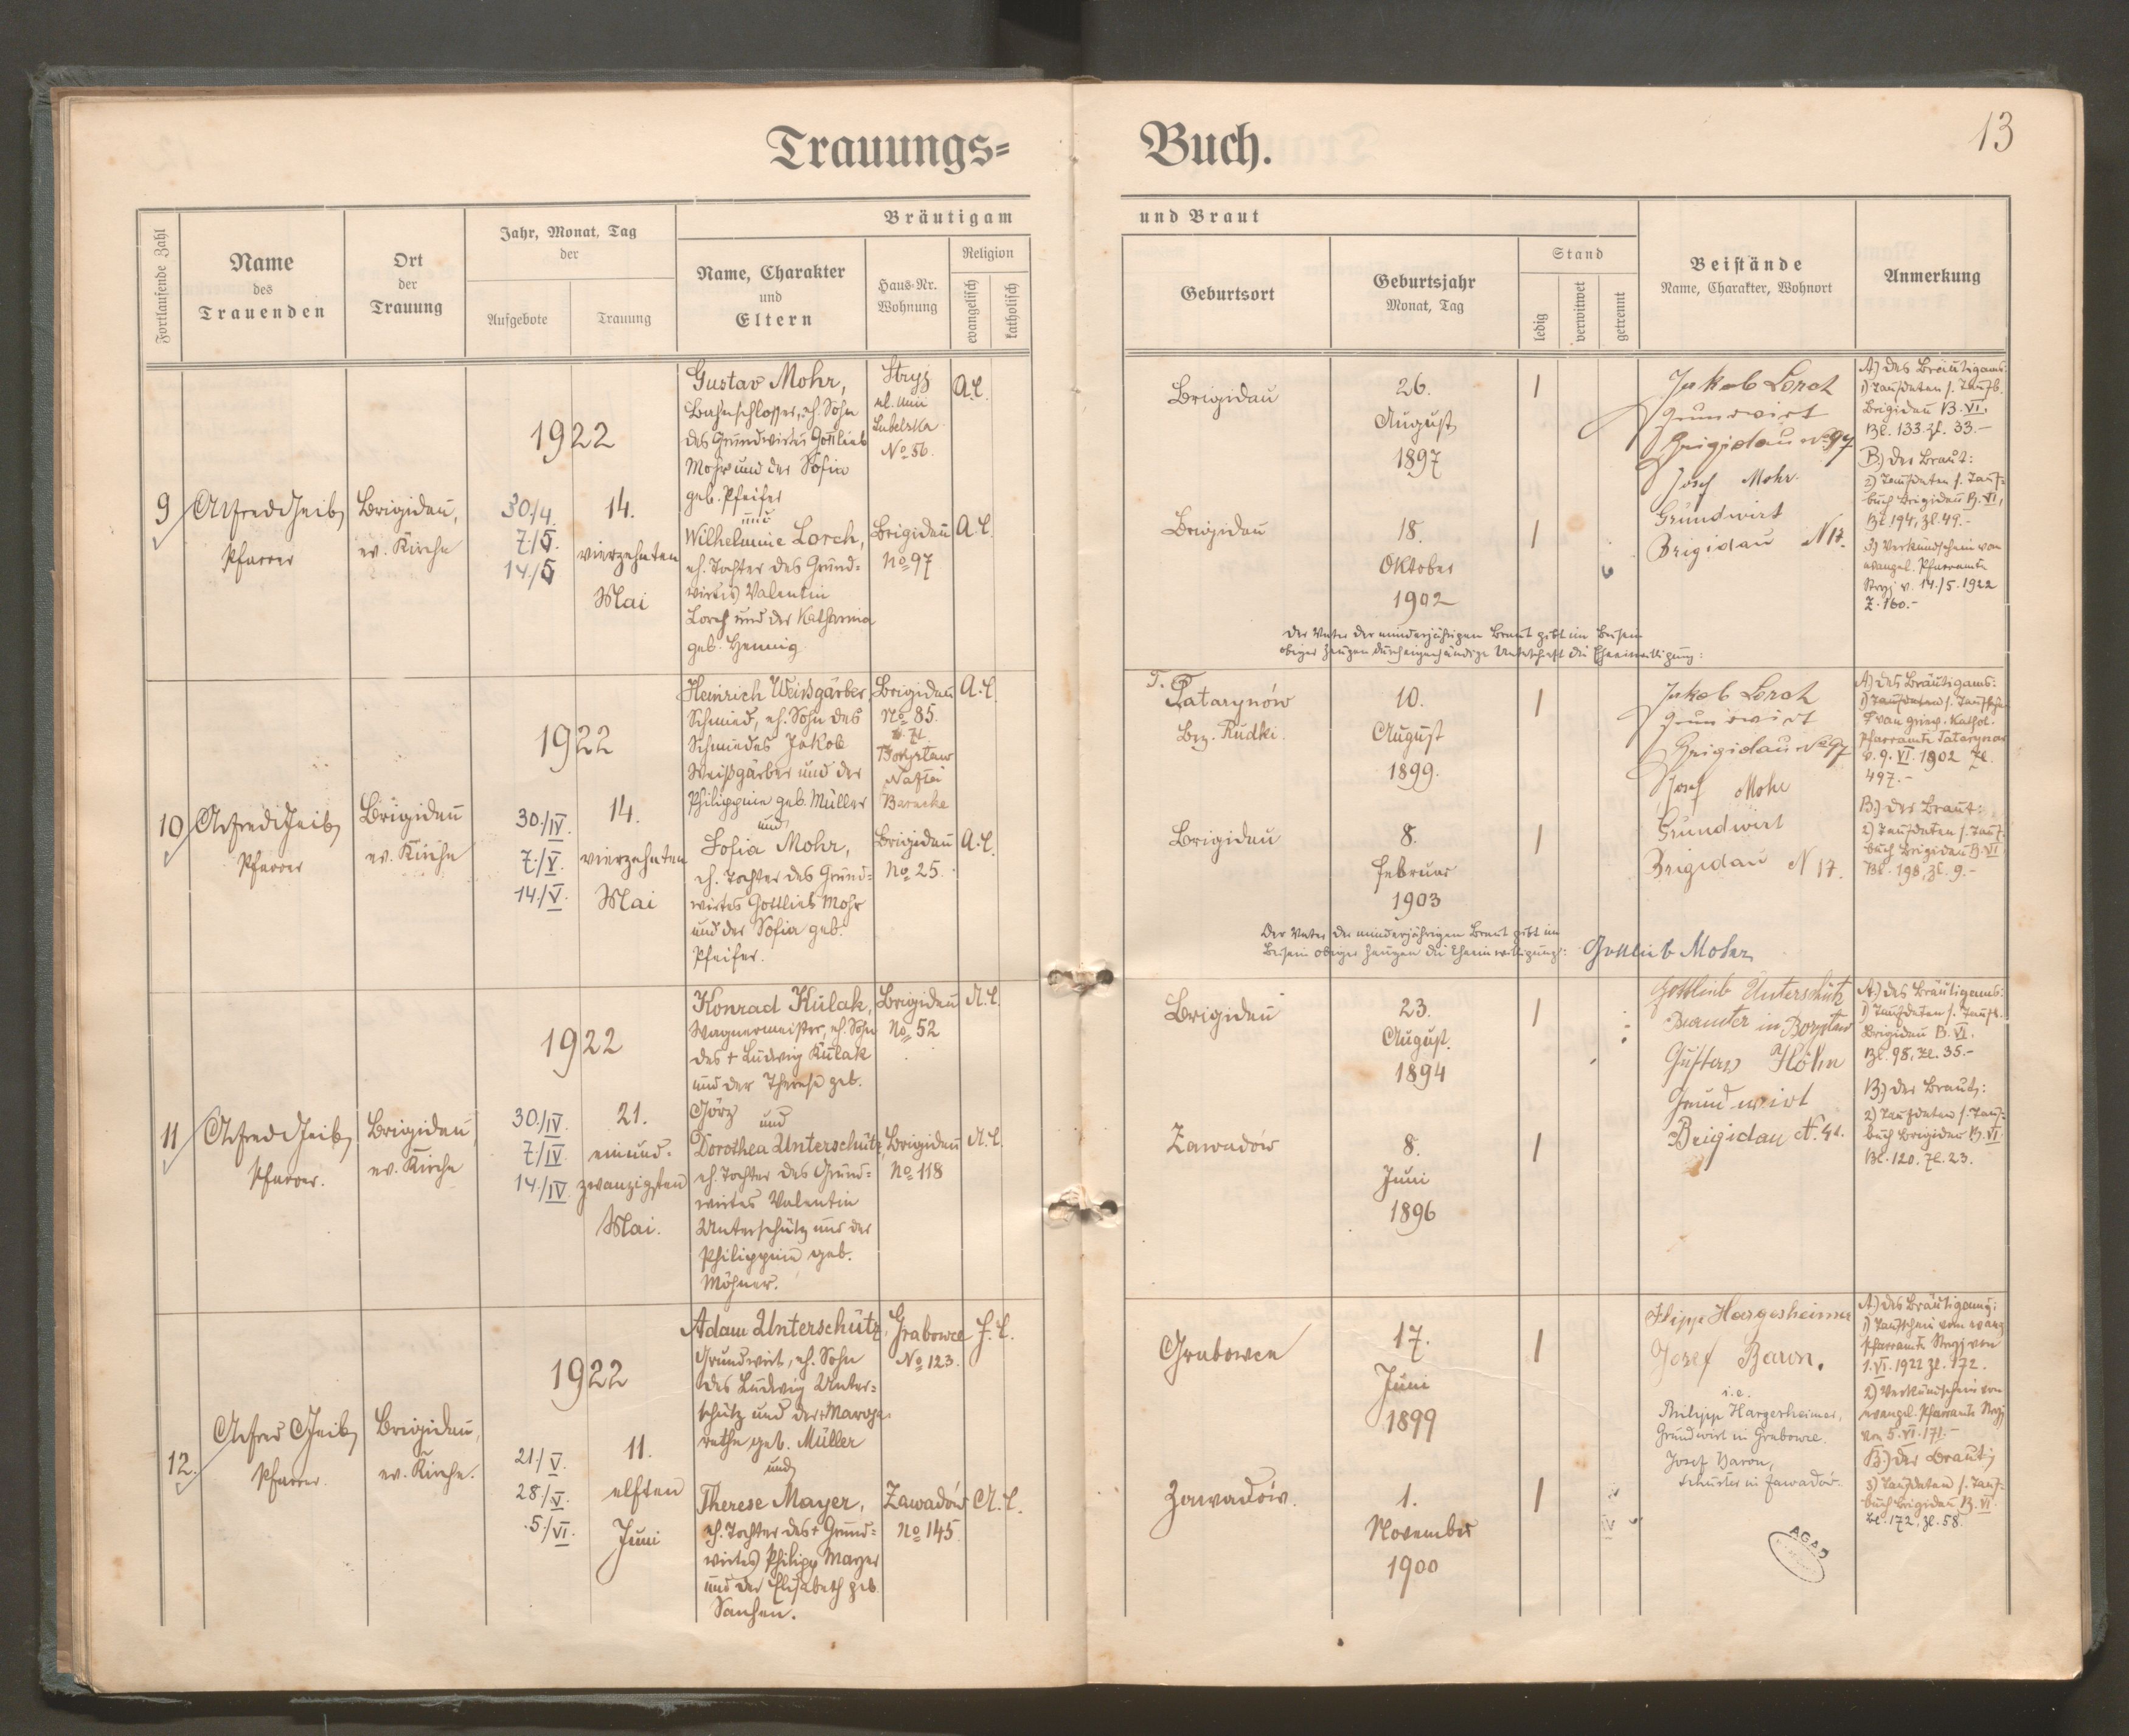 Trauungs=
Buch.
13
Fortlaufende Zahl
Name
des
Trauenden
Ort
der
Trauung
Jahr, Monat, Tag
der
Aufgebote
Trauung
Bräutigam
Name, Charakter
und
Eltern
Haus-Nr.
Wohnung
Religion
evangelisch
katholisch
und Braut
Geburtsort
Geburtsjahr
Monat, Tag
Stand
ledig
verwitwet
getrennt
Beistände
Name, Charakter, Wohnort
Anmerkung
9
Alfred
Pfarrer
Brigidau,
ev. Kirche
1922
30/4.
7./5.
14./5
14.
vierzehnten
Mai
Gustav Mohr,
Bahnschlosser, eh. Sohn
des Grundwirtes Gottlieb
Mohr und der Sofia
geb. Pfeifer
und
Wilhelmine Lorch,
eh. Tochter des Grund=
wirtes Valentin
Lorch und der Katharina
geb. Hennig
Stryj
ul. Unii
Lubelska
No 56.
A.C.
Brigidau
No 97
A.C.
Brigidau
26.
August
1897
Brigidau
18.
Oktober
1902
Der Vater der minderjährigen Braut gibt im Beisein
obiger Zeugen durch eigenhändige Unterschrift die Eheeinwilligung:
Jakob Lorch
Grundwirt
Brigidau No 97
Josef Mohr.
Grundwirt
Brigidau N 17.
A) des Bräutigams:
1) Taufdaten s. Taufb.
Brigidau B. VI.
Bl. 133. Zl. 33.-
B.) der Braut:
2) Taufdaten s. Tauf=
buch Brigidau B. VI,
Bl. 194, Zl. 49.-
3) Verkündschein vom
evangel. Pfarramte
Stryj v. 14./5. 1922
Z. 160.-
10
Alfred
Pfarrer
Brigidau
ev. Kirche
1922
30./IV.
7./V.
14./V.
14.
vierzehnten
Mai
Heinrich Weißgärber,
Schmied, eh. Sohn des
Schmiedes Jakob
Weißgärber und der
Philippine geb. Müller
und
Sofia Mohr,
eh. Tochter des Grund=
wirtes Gottlieb Mohr
und der Sofia geb.
Pfeifer.
Brigidau
No 85.
z. Zt.
Borysław
Nafta
Baracke
A.C.
Brigidau
No 25.
A.C.
T.
Tatarynów
Bez. Rudki.
10.
August
1899.
Brigidau
8.
Februar
1903
Der Vater der minderjährigen Braut gibt im
Beisein obiger Zeugen die Eheeinwilligung:
Gottlieb Mohr
Jakob Lorch
Grundwirt
Brigidau No 97
Josef Mohr
Grundwirt
Brigidau N 17.
A) des Bräutigams:
1) Taufdaten s. Taufschein
von griech. Kathol.
Pfarramte Tatarynów
v. 9. VI. 1902 Zl.
497.-
B.) der Braut:
2) Taufdaten s. Tauf=
buch Brigidau B. VI
Bl. 198, Zl. 9.-
11
Alfred
Pfarrer.
Brigidau,
ev. Kirche
1922
30./IV.
7./IV.
14./IV.
21.
einund=
zwanzigsten
Mai.
Konrad Kulak,
Wagnermeister, eh. Sohn
des + Ludwig Kulak
und der Therese geb.
Görz
und
Dorothea Unterschütz,
eh. Tochter des Grund=
wirtes Valentin
Unterschütz und der
Philippine geb.
Möhner.
Brigidau
No 52
A.C.
Brigidau
No 118
A.C.
Brigidau
23.
August.
1894
Zawadów
8.
Juni
1896
Gottlieb Unterschütz
Beamter in Borysław
Gustav Höhn
Grundwirt
Brigidau
A.) des Bräutigams:
1) Taufdaten s. Taufb.
Brigidau B. VI.
Bl. 98, Zl. 35.-
B.) der Braut:
2) Taufdaten s. Tauf=
buch Brigidau B. VI
Bl. 120. Zl. 23.
12.
Alfred
Pfarrer.
Brigidau,
ev. Kirche.
1922
21./V.
28./V.
5./VI.
11.
elften
Juni
Adam Unterschütz,
Grundwirt, eh. Sohn
des Ludwig Unter=
schütz und der + Marga=
rethe geb. Müller
und
Therese Mayer,
eh. Tochter des + Grund=
wirtes Philipp Mayer
und der Elisabeth geb.
Grabowce
No 123.
H.C.
Zawadów
No 145
A.C.
Grabowce
17.
Juni
1899
Zawadów.
1.
November
1900
Filipp Hargesheimer
Josef Baron.
i.e.
Philipp Hargesheimer,
Grundwirt in Grabowce.
Josef Baron,
Schuster in Zawadów.
AGAD
A.) des Bräutigams:
1) Taufschein vom evang.
Pfarramte Stryj von
1. VI. 1922 Zl. 172.
2) Verkündschein von
evangel. Pfarramte Stryj
von 5. VI. 171.-
B.) der Braut:
3) Taufdaten s. Tauf=
buch Brigidau B. VI
Bl. 172, Zl. 58.